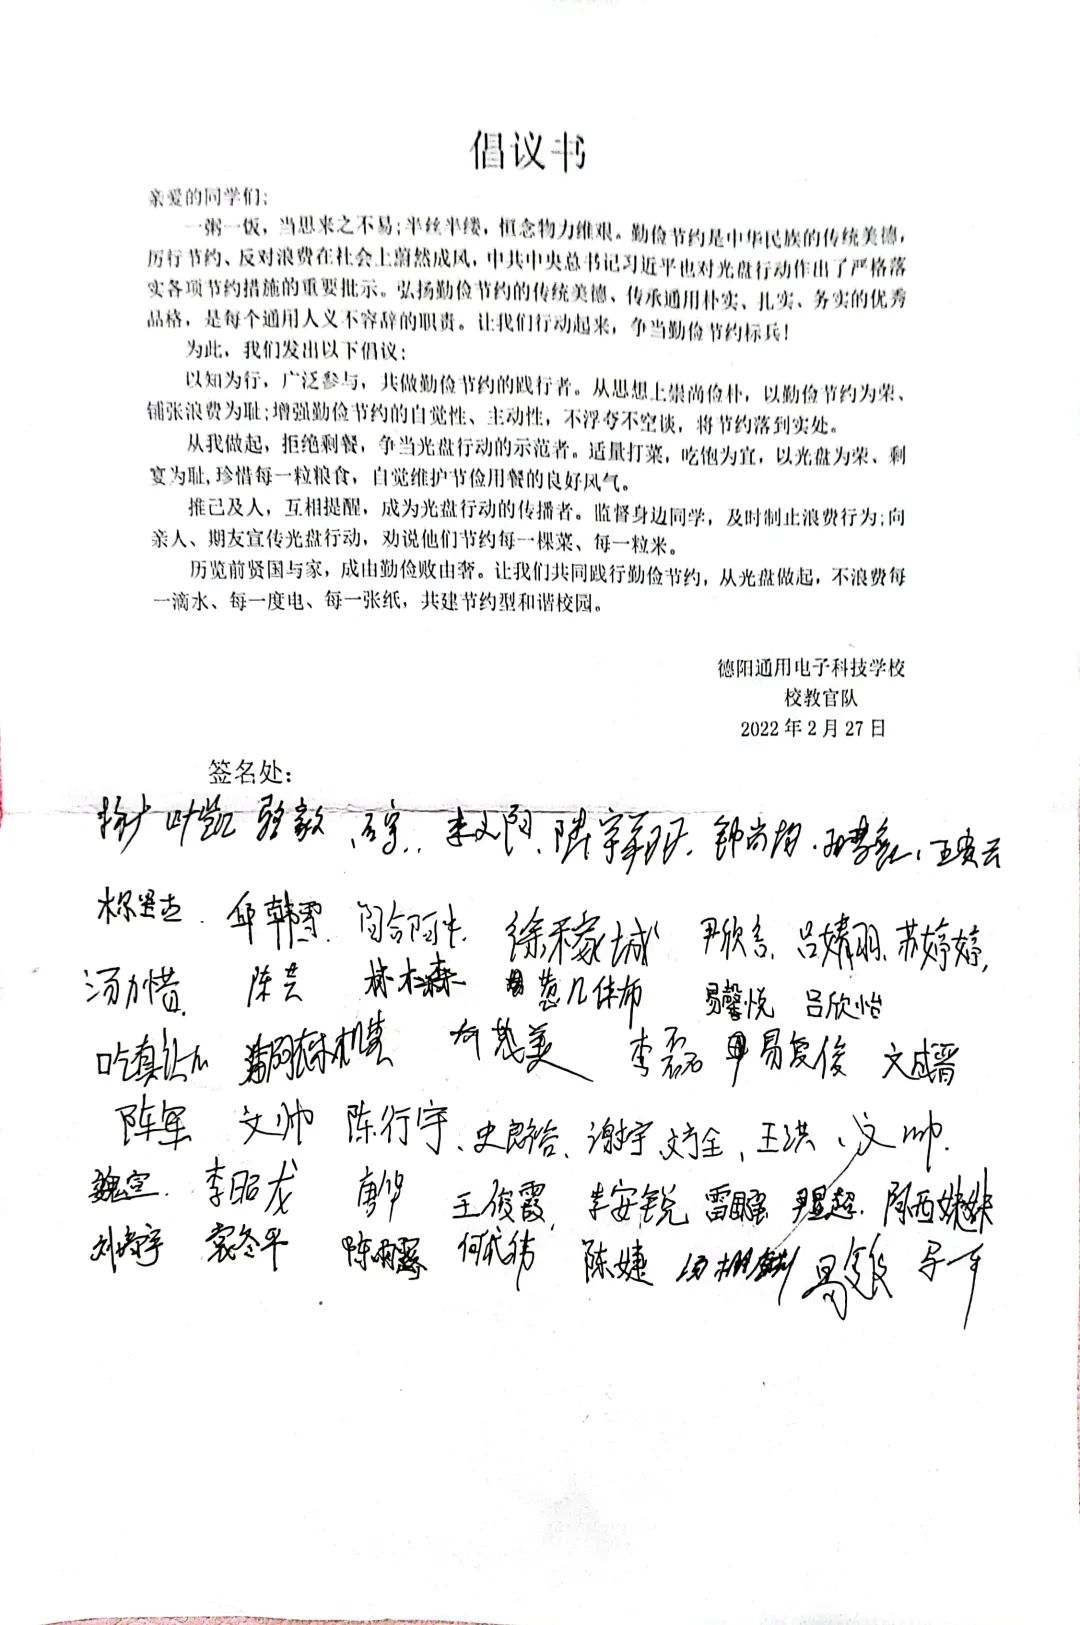 倡议书
亲爱的同学们:
一粥一饭，当思来之不易;半丝半缕，恒念物力维艰。勤俭节约是中华民族的传统美德，
厉行节约、反对浪费在社会上蔚然成风，中共中央总书记习近平也对光盘行动作出了严格落
实各项节约措施的重要批示。弘扬勤俭节约的传统美德、传承通用朴实、扎实、务实的优秀
品格，是每个通用人义不容辞的职责。让我们行动起来，争当勤俭节约标兵!
为此，我们发出以下倡议:
以知为行，广泛参与，共做勤俭节约的践行者。从思想上崇尚俭朴，以勤俭节约为荣、
铺张浪费为耻;增强勤俭节约的自觉性、主动性，不浮夸不空谈，将节约落到实处。
从我做起，拒绝剩餐，争当光盘行动的示范者。适量打菜，吃饱为宜，以光盘为荣、剩
宴为耻,珍惜每一粒粮食，自觉维护节俭用餐的良好风气。
推己及人，互相提醒，成为光盘行动的传播者。监督身边同学，及时制止浪费行为;向
亲人、朋友宣传光盘行动，劝说他们节约每一棵菜、每一粒米。
历览前贤国与家，成由勤俭败由奢。让我们共同践行勤俭节约，从光盘做起，不浪费每
一滴水、每一度电、每一张纸，共建节约型和谐校园。
德阳通用电子科技学校
校教官队
2022年2月27日
签名处:
叶凯 李文阳 钟尚均
邱韩雪 徐稼城 尹欣言 吕婧羽 苏婷婷
陈芸 林木森 易馨悦 吕欣怡
李磊 易复俊 文成晋
陈军 文帅 陈行宇 谢宇 王洪 文帅
魏宣 李昭龙 唐华 王俊霞 李安锐 阿西妹妹
袁冬平 陈雨露 何代伟 陈婕